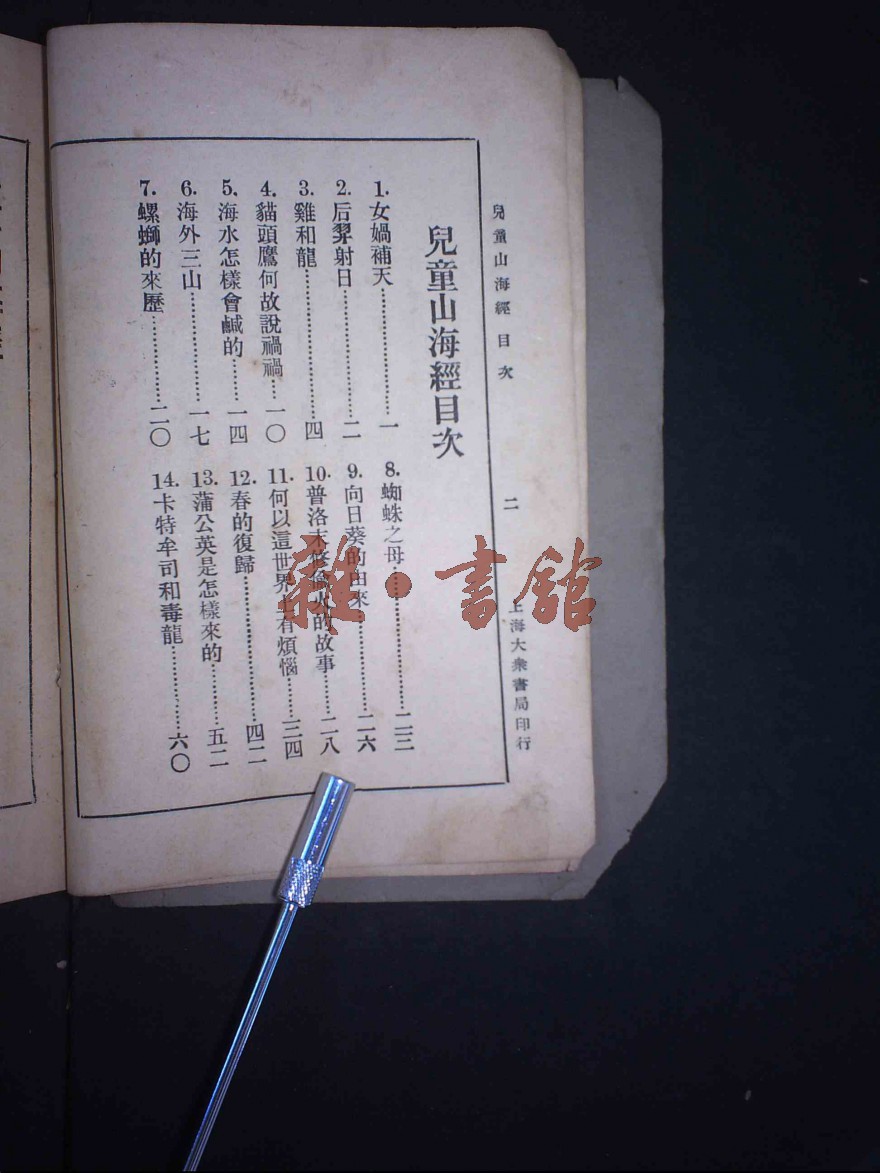 兒童山海經 目次 二 上海大衆書局印行
兒童山海經目次
1. 女媧補天……一
2. 后羿射日……二
3. 雞和龍……四
4. 貓頭鷹何故說禍禍……一〇
5. 海水怎樣會鹹的……一四
6. 海外三山……一七
7. 螺螄的來歷……二〇
8. 蜘蛛之母……二三
9. 向日葵的由來……二六
10. 普洛米修偷火的故事……二八
11. 何以這世界上有煩惱……三四
12. 春的復歸……四二
13. 蒲公英是怎樣來的……五二
14. 卡特牟司和毒龍……六〇
雜·書館